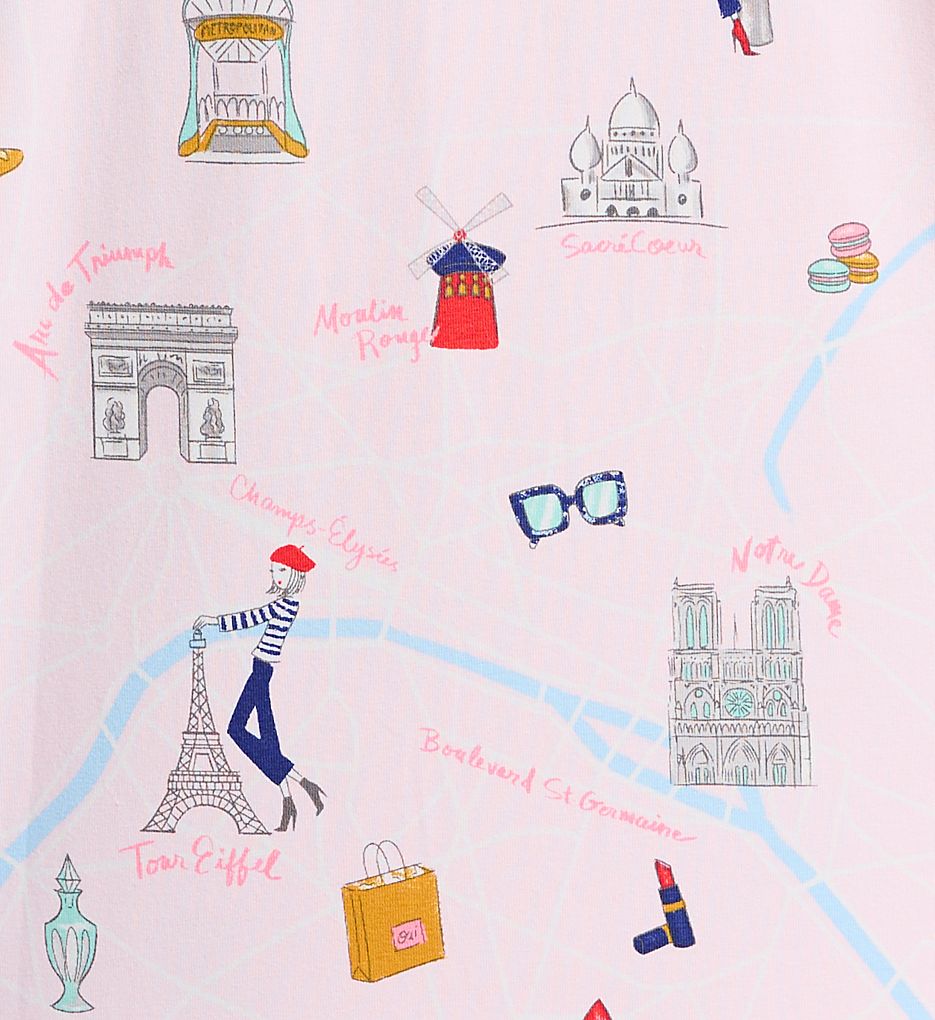 METROPOLITAN
SacréCoeur
Arc de Triumph
Moulin
Rouge
Champs-Élysées
Notre Dame
Boulevard St Germaine
Tour Eiffel
Oui